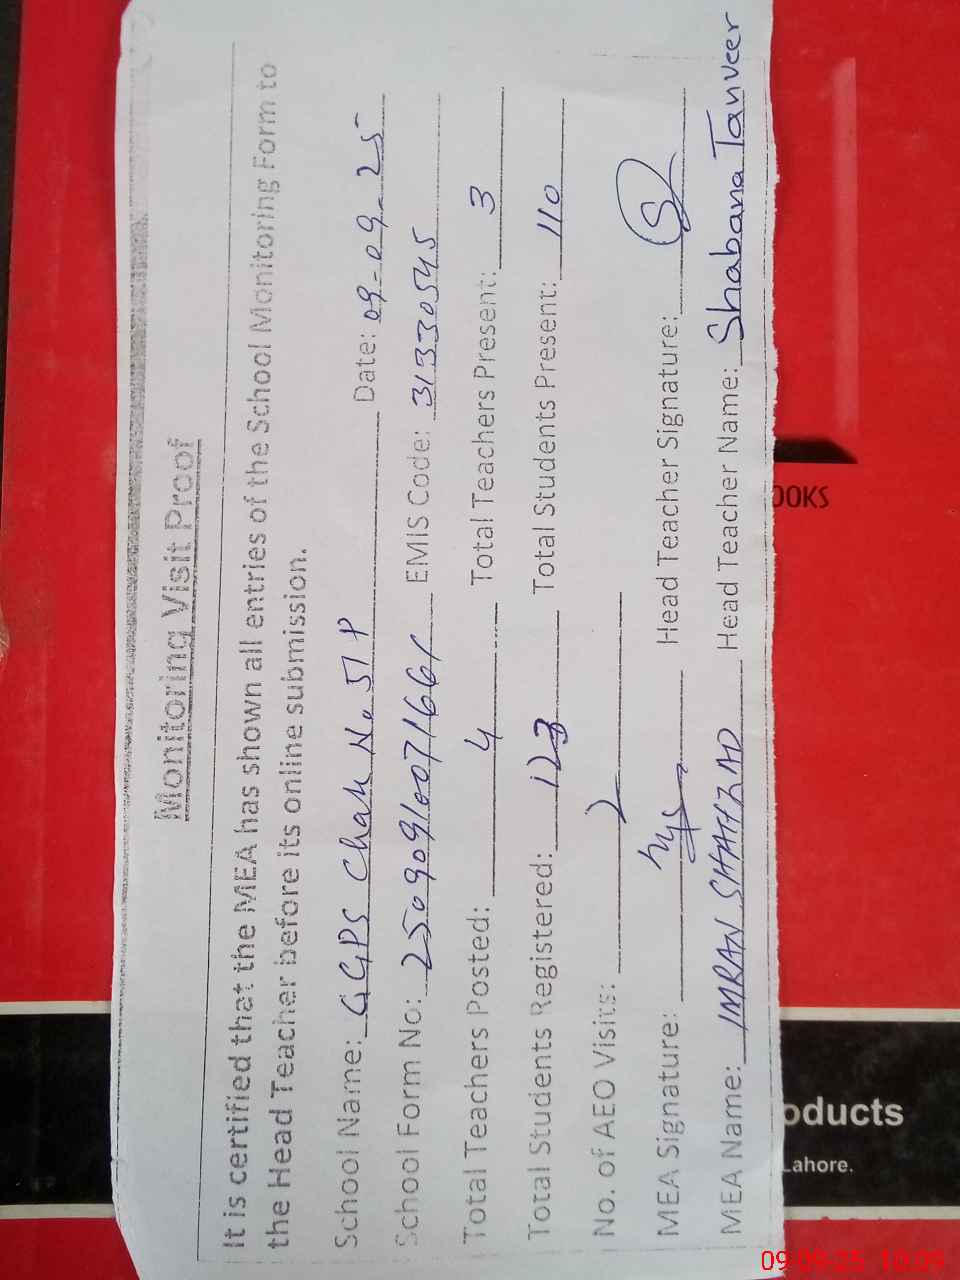 Monitoring Visit Proof
It is certified that the MEA has shown all entries of the School Monitoring Form to
the Head Teacher before its online submission.
School Name: GGPS Chak No. 51 P Date: 09-09-25
School Form No: 250909100716661 EMIS Code: 31330545
Total Teachers Posted: 4 Total Teachers Present: 3
Total Students Registered: 123 Total Students Present: 110
No. of AEO Visits: 2
MEA Signature: Head Teacher Signature:
MEA Name: IMRAN SHAHZAD Head Teacher Name: Shabana Tanveer
OOKS
oducts
Lahore.
09-09-25 10:09